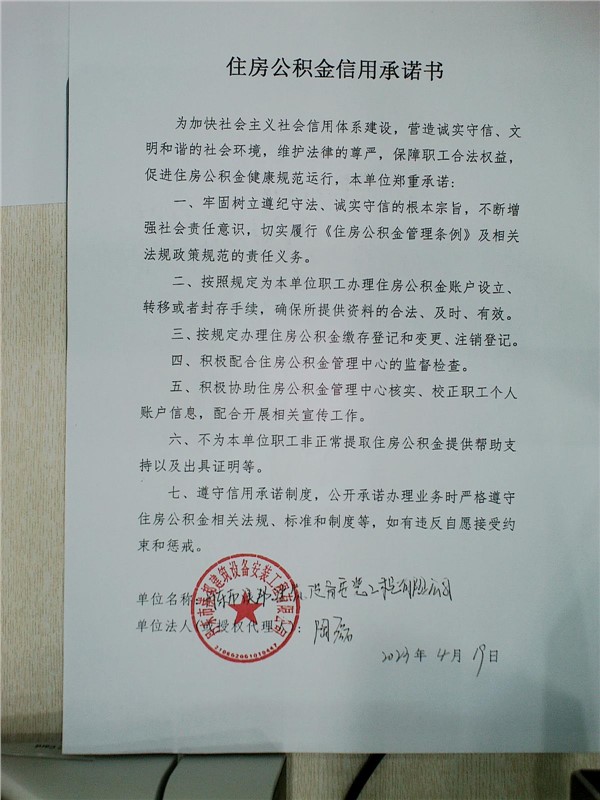 住房公积金信用承诺书
为加快社会主义社会信用体系建设，营造诚实守信、文
明和谐的社会环境，维护法律的尊严，保障职工合法权益，
促进住房公积金健康规范运行，本单位郑重承诺:
一、牢固树立遵纪守法、诚实守信的根本宗旨，不断增
强社会责任意识，切实履行《住房公积金管理条例》及相关
法规政策规范的责任义务。
二、按照规定为本单位职工办理住房公积金账户设立、
转移或者封存手续，确保所提供资料的合法、及时、有效。
三、按规定办理住房公积金缴存登记和变更、注销登记。
四、积极配合住房公积金管理中心的监督检查。
五、积极协助住房公积金管理中心核实、校正职工个人
账户信息，配合开展相关宣传工作。
六、不为本单位职工非正常提取住房公积金提供帮助支
持以及出具证明等。
七、遵守信用承诺制度，公开承诺办理业务时严格遵守
住房公积金相关法规、标准和制度等，如有违反自愿接受约
束和惩戒。
单位名称 设备安装工程有限公司
建筑设备安装工程有限公司
单位法人(或授权代理人): 陶磊
2023年4月19日